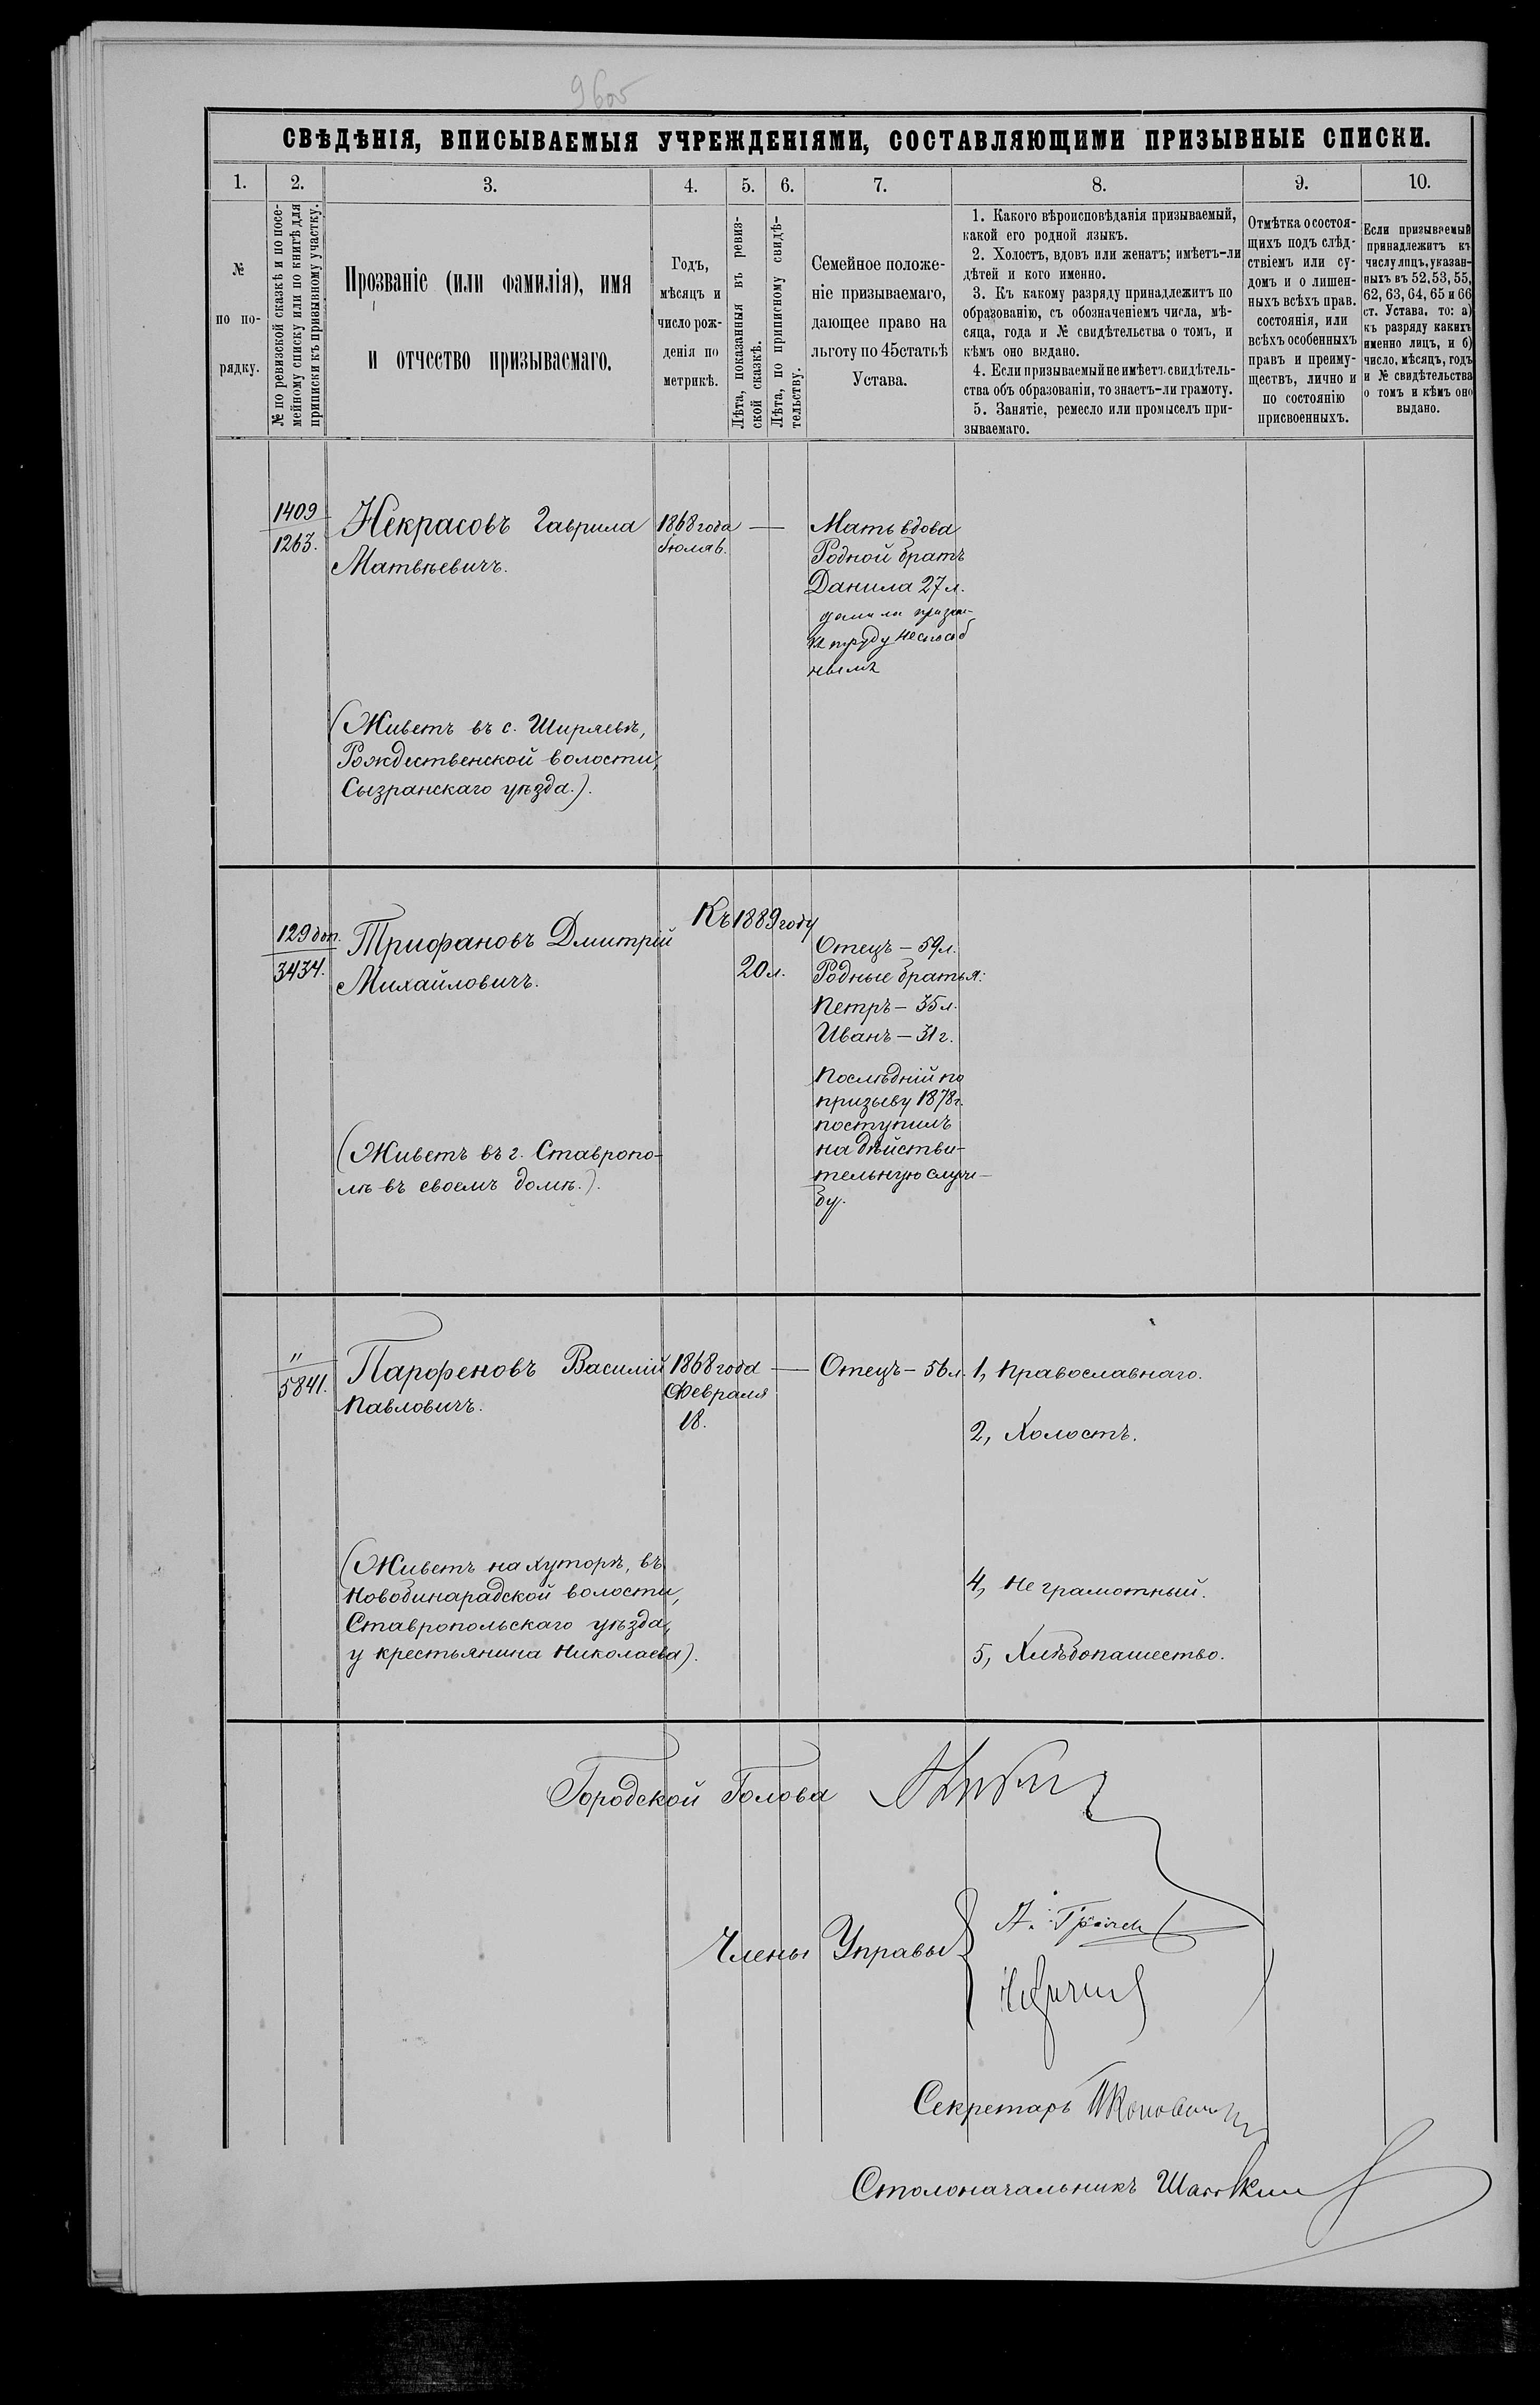 СВѢДѢНІЯ, ВПИСЫВАЕМЫЯ УЧРЕЖДЕНІЯМИ, СОСТАВЛЯЮЩИМИ ПРИЗЫВНЫЕ СПИСКИ.
1.
2.
3.
4.
5.
6.
7.
8.
9.
10.
№
по по-
рядку.
№ по ревизской сказкѣ и по посе-
мейному списку или по книгѣ для
приписки къ призывному участку.
Прозваніе (или фамилія), имя
и отчество призываемаго.
Годъ,
мѣсяцъ и
число рож-
денія по
метрикѣ.
Лѣта, показанныя въ ревиз-
ской сказкѣ.
Лѣта, по приписному свидѣ-
тельству.
Семейное положе-
ніе призываемаго,
дающее право на
льготу по 45 статьѣ
Устава.
1. Какого вѣроисповѣданія призываемый,
какой его родной языкъ.
2. Холостъ, вдовъ или женатъ; имѣетъ-ли
дѣтей и кого именно.
3. Къ какому разряду принадлежитъ по
образованію, съ обозначеніемъ числа, мѣ-
сяца, года и № свидѣтельства о томъ, и
кѣмъ оно выдано.
4. Если призываемый не имѣетъ свидѣтель-
ства объ образованіи, то знаетъ-ли грамоту.
5. Занятіе, ремесло или промыселъ при-
зываемаго.
Отмѣтка о состоя-
щихъ подъ слѣд-
ствіемъ или су-
домъ и о лишен-
ныхъ всѣхъ прав.
состоянія, или
всѣхъ особенныхъ
правъ и преиму-
ществъ, лично и
по состоянію
присвоенныхъ.
Если призываемый
принадлежитъ къ
числу лицъ, указан-
ныхъ въ 52, 53, 55,
62, 63, 64, 65 и 66
ст. Устава, то: а)
къ разряду какихъ
именно лицъ, и б)
число, мѣсяцъ, годъ
и № свидѣтельства
о томъ и кѣмъ оно
выдано.
1409
1263.
Некрасовъ Гаврила
Матвѣевичъ.
1868 года
Іюля 6.
—
Мать вдова
Родной братъ
Данила 27 л.
Данила призн-
къ труду неспособ
нымъ
(Живетъ въ с. Ширяевѣ,
Рождественской волости,
Сызранскаго уѣзда.).
129 доп.
3434.
Трифановъ Дмитрій
Михайловичъ.
Къ 1889 году
20 л.
Отецъ — 59 л.
Родные братья:
Петръ — 35 л.
Иванъ — 31 г.
Послѣдній по
призыву 1878 г.
поступилъ
на дѣйстви-
тельную служ-
бу.
(Живетъ въ г. Ставропо-
лѣ въ своемъ домѣ.).
"
5841.
Парфеновъ Василій
Павловичъ.
1868 года
Февраля
18.
—
Отецъ — 56 л.
1, Православнаго.
2, Холостъ.
4, Неграмотный.
5, Хлѣбопашество.
(Живетъ на хуторѣ, въ
Новобинарадской волости,
Ставропольскаго уѣзда,
у крестьянина Николаева).
Городской Голова
Члены Управы
Секретарь
Столоначальникъ